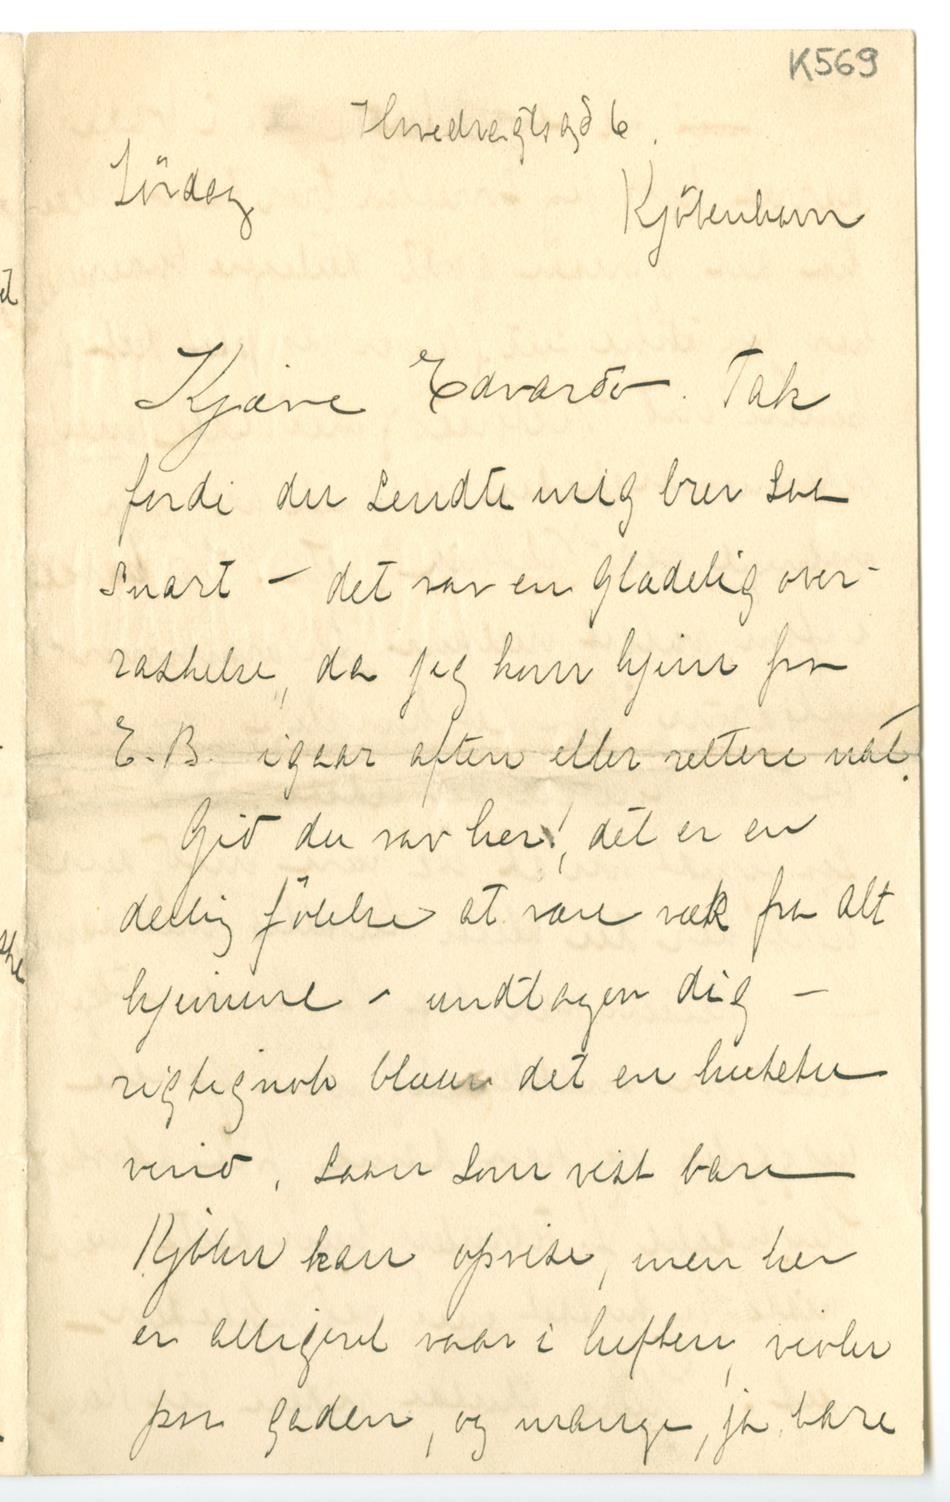 K569
Hvedevegtsgd 6.
Lördag
Kjöbenhavn
Kjære Edvard. Tak
fordi du sendte mig brev saa
snart – det var en glædelig over-
raskelse, da jeg kom hjem fra
E. B. igaar aften eller rettere nat.
Gid du var her!, det er en
deilig fölelse at være væk fra alt
hjemme – undtagen dig –
rigtignok blæser det en
vind, saan som vist bare
Kjöben kan opvise, men her
er alligevel vaar i luften, violer
paa gaden, og mange, ja bare